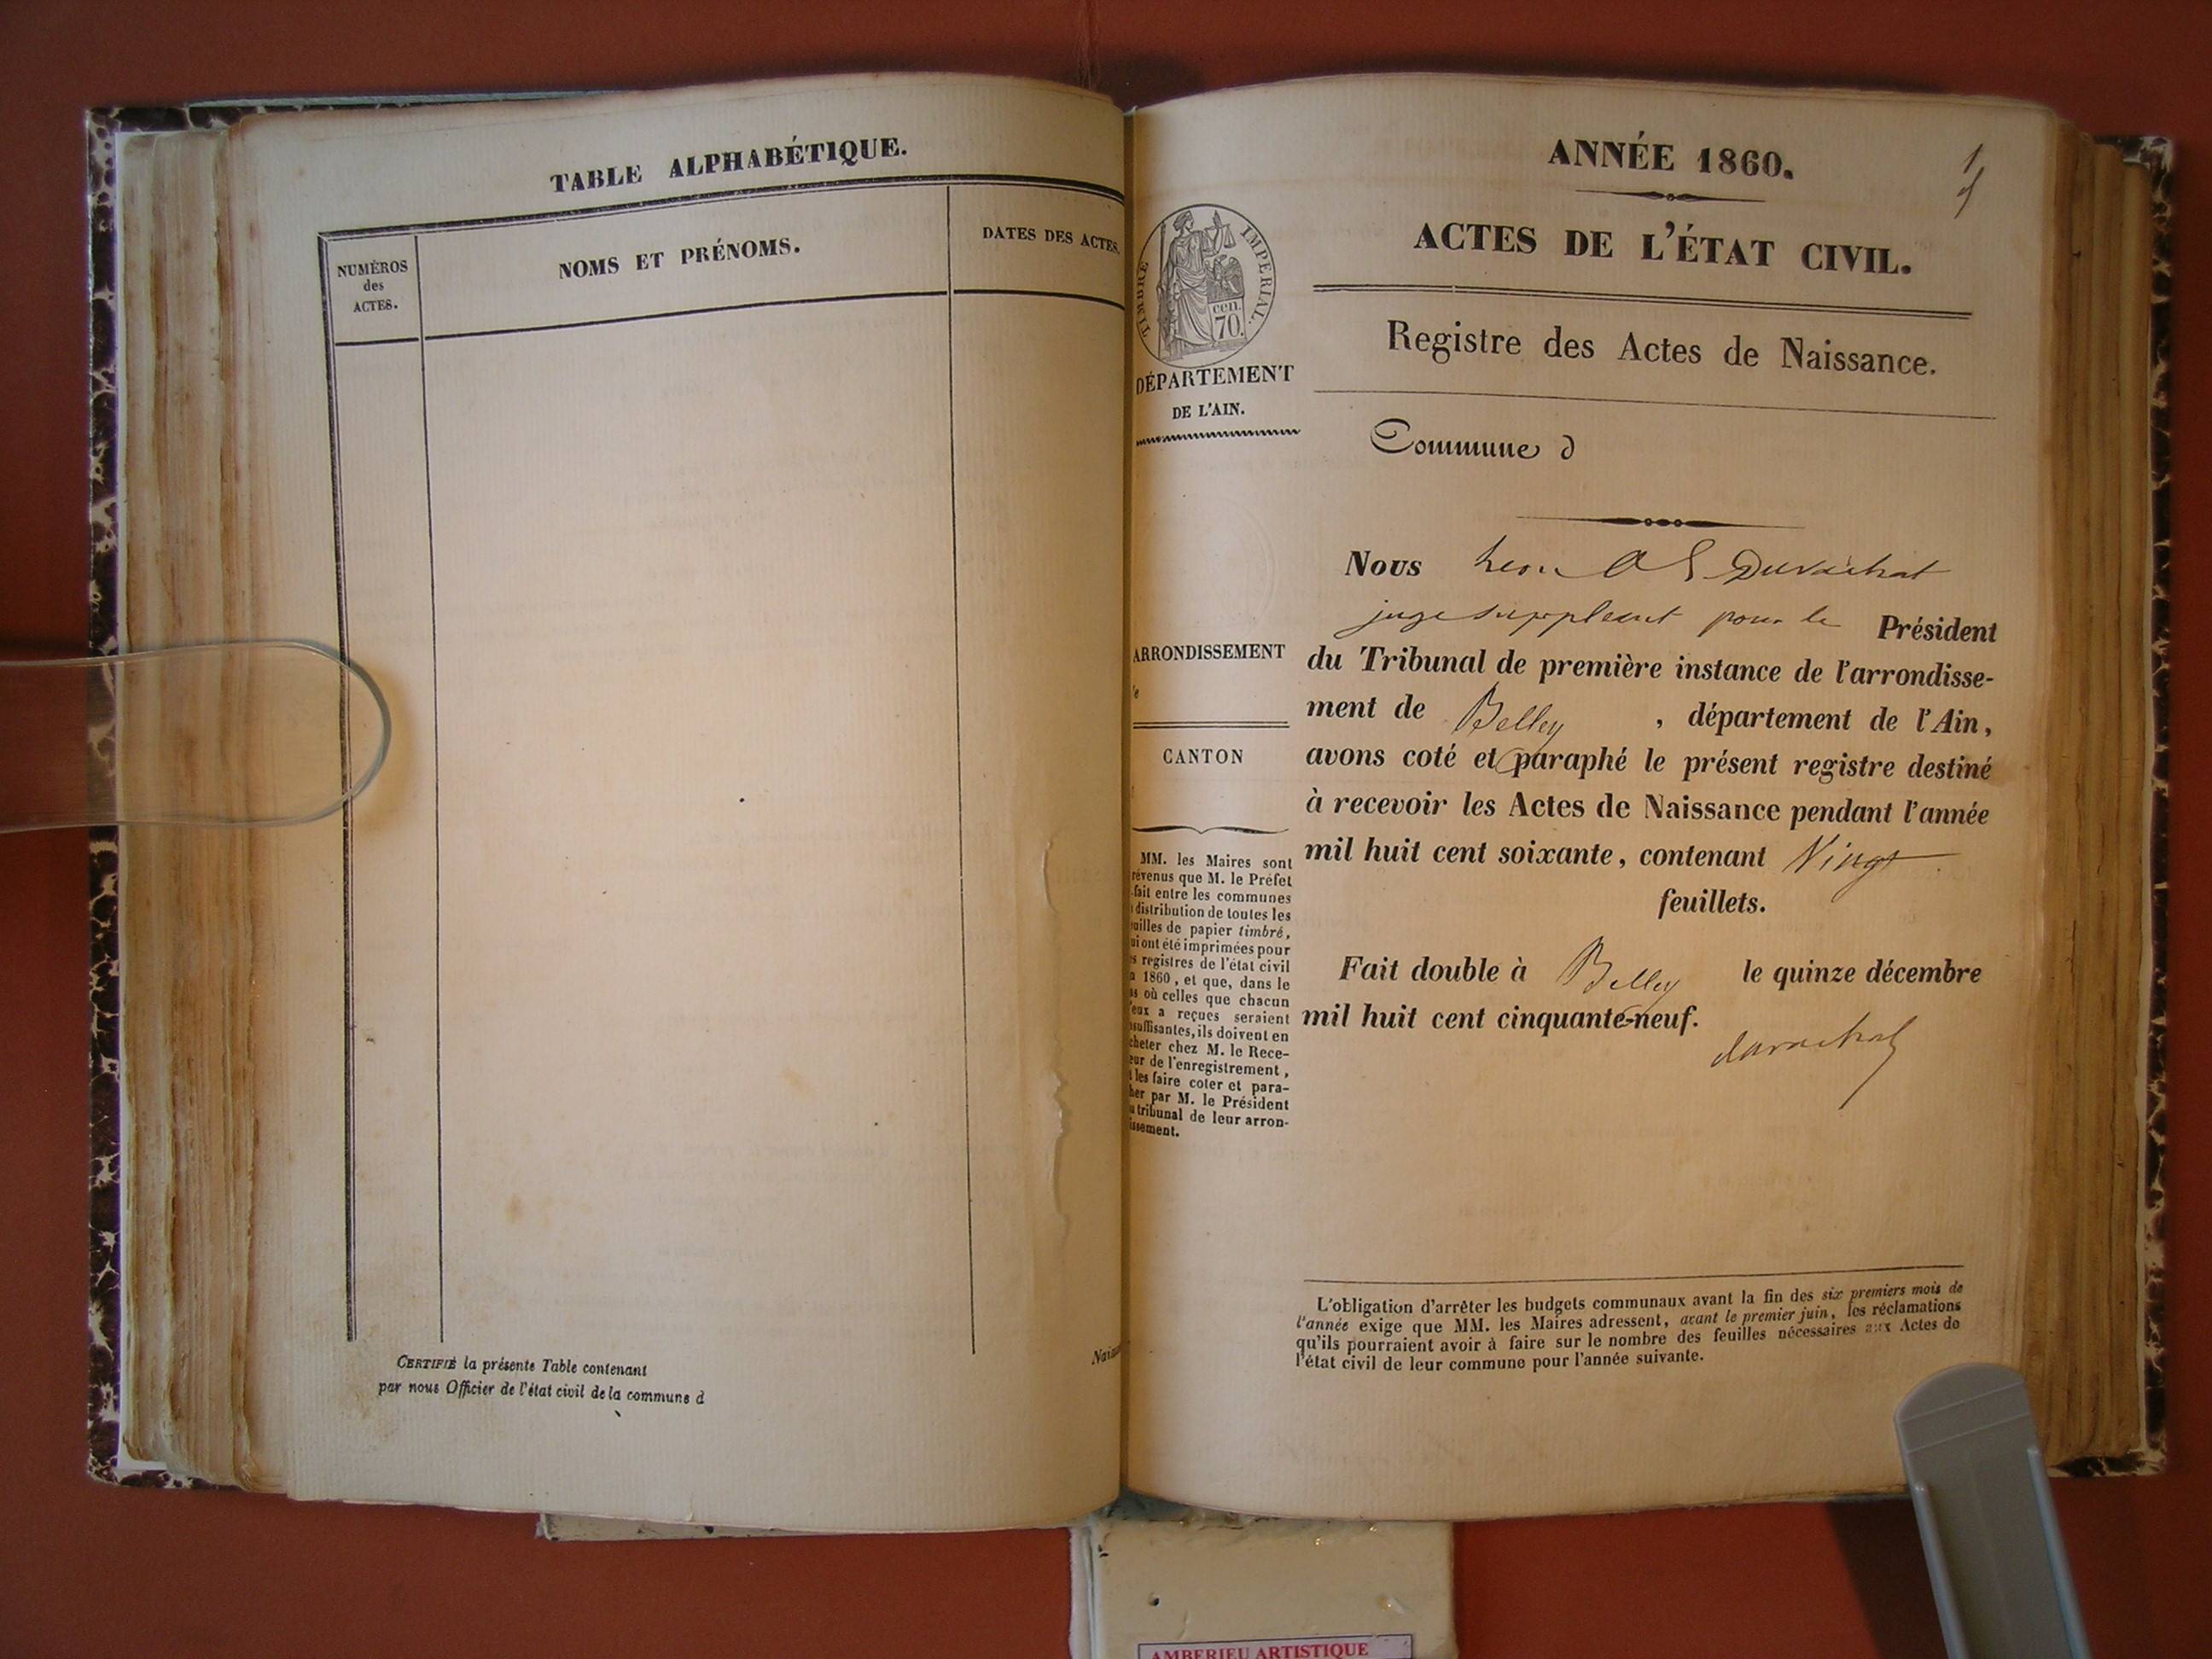 TABLE ALPHABÉTIQUE.
NUMÉROS
des
ACTES.
NOMS ET PRÉNOMS.
DATES DES ACTES.
CERTIFIÉ la présente Table contenant
par nous Officier de l'état civil de la commune d
ANNÉE 1860.
1
ACTES DE L'ÉTAT CIVIL.
TIMBRE IMPÉRIAL.
cen.
70.
DÉPARTEMENT
DE L'AIN.
Registre des Actes de Naissance.
Commune d
Nous Duvachat
juge suppleant pour le Président
du Tribunal de première instance de l'arrondisse-
ment de Belley, département de l'Ain,
avons coté et paraphé le présent registre destiné
à recevoir les Actes de Naissance pendant l'année
mil huit cent soixante, contenant Vingt
feuillets.
Fait double à Belley le quinze décembre
mil huit cent cinquante-neuf.
duvachat
ARRONDISSEMENT
CANTON
MM. les Maires sont
révenus que M. le Préfet
fait entre les communes
distribution de toutes les
uilles de papier timbré,
ui ont été imprimées pour
s registres de l'état civil
1860, et que, dans le
s où celles que chacun
eux a reçues seraient
suffisantes, ils doivent en
cheter chez M. le Rece-
eur de l'enregistrement,
les faire coter et para-
her par M. le Président
u tribunal de leur arron-
issement.
L'obligation d'arrêter les budgets communaux avant la fin des six premiers mois de
l'année exige que MM. les Maires adressent, avant le premier juin, les réclamations
qu'ils pourraient avoir à faire sur le nombre des feuilles nécessaires aux Actes de
l'état civil de leur commune pour l'année suivante.
AMBERIEU ARTISTIQUE